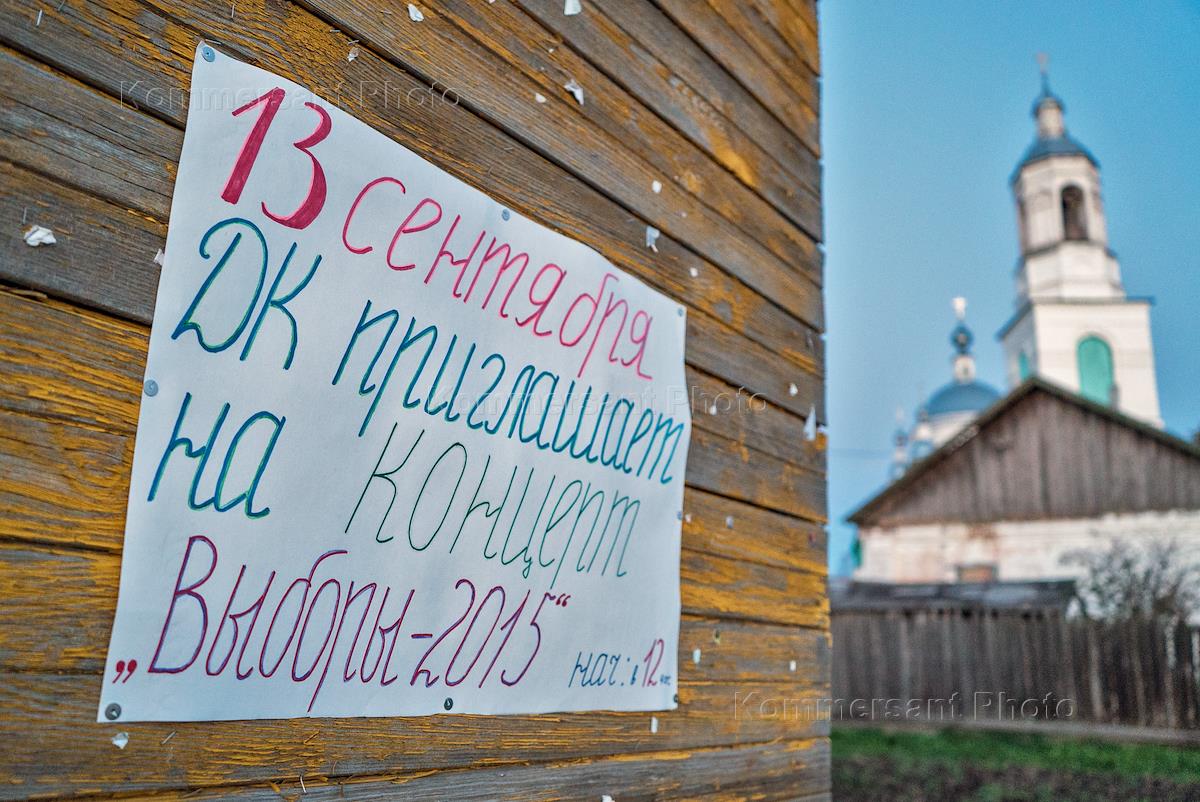 Kommersant Photo
13 сентября
ДК приглашает
на концерт
Kommersant Photo
„Выборы-2015“
нач: в 12 час.
Kommersant Photo